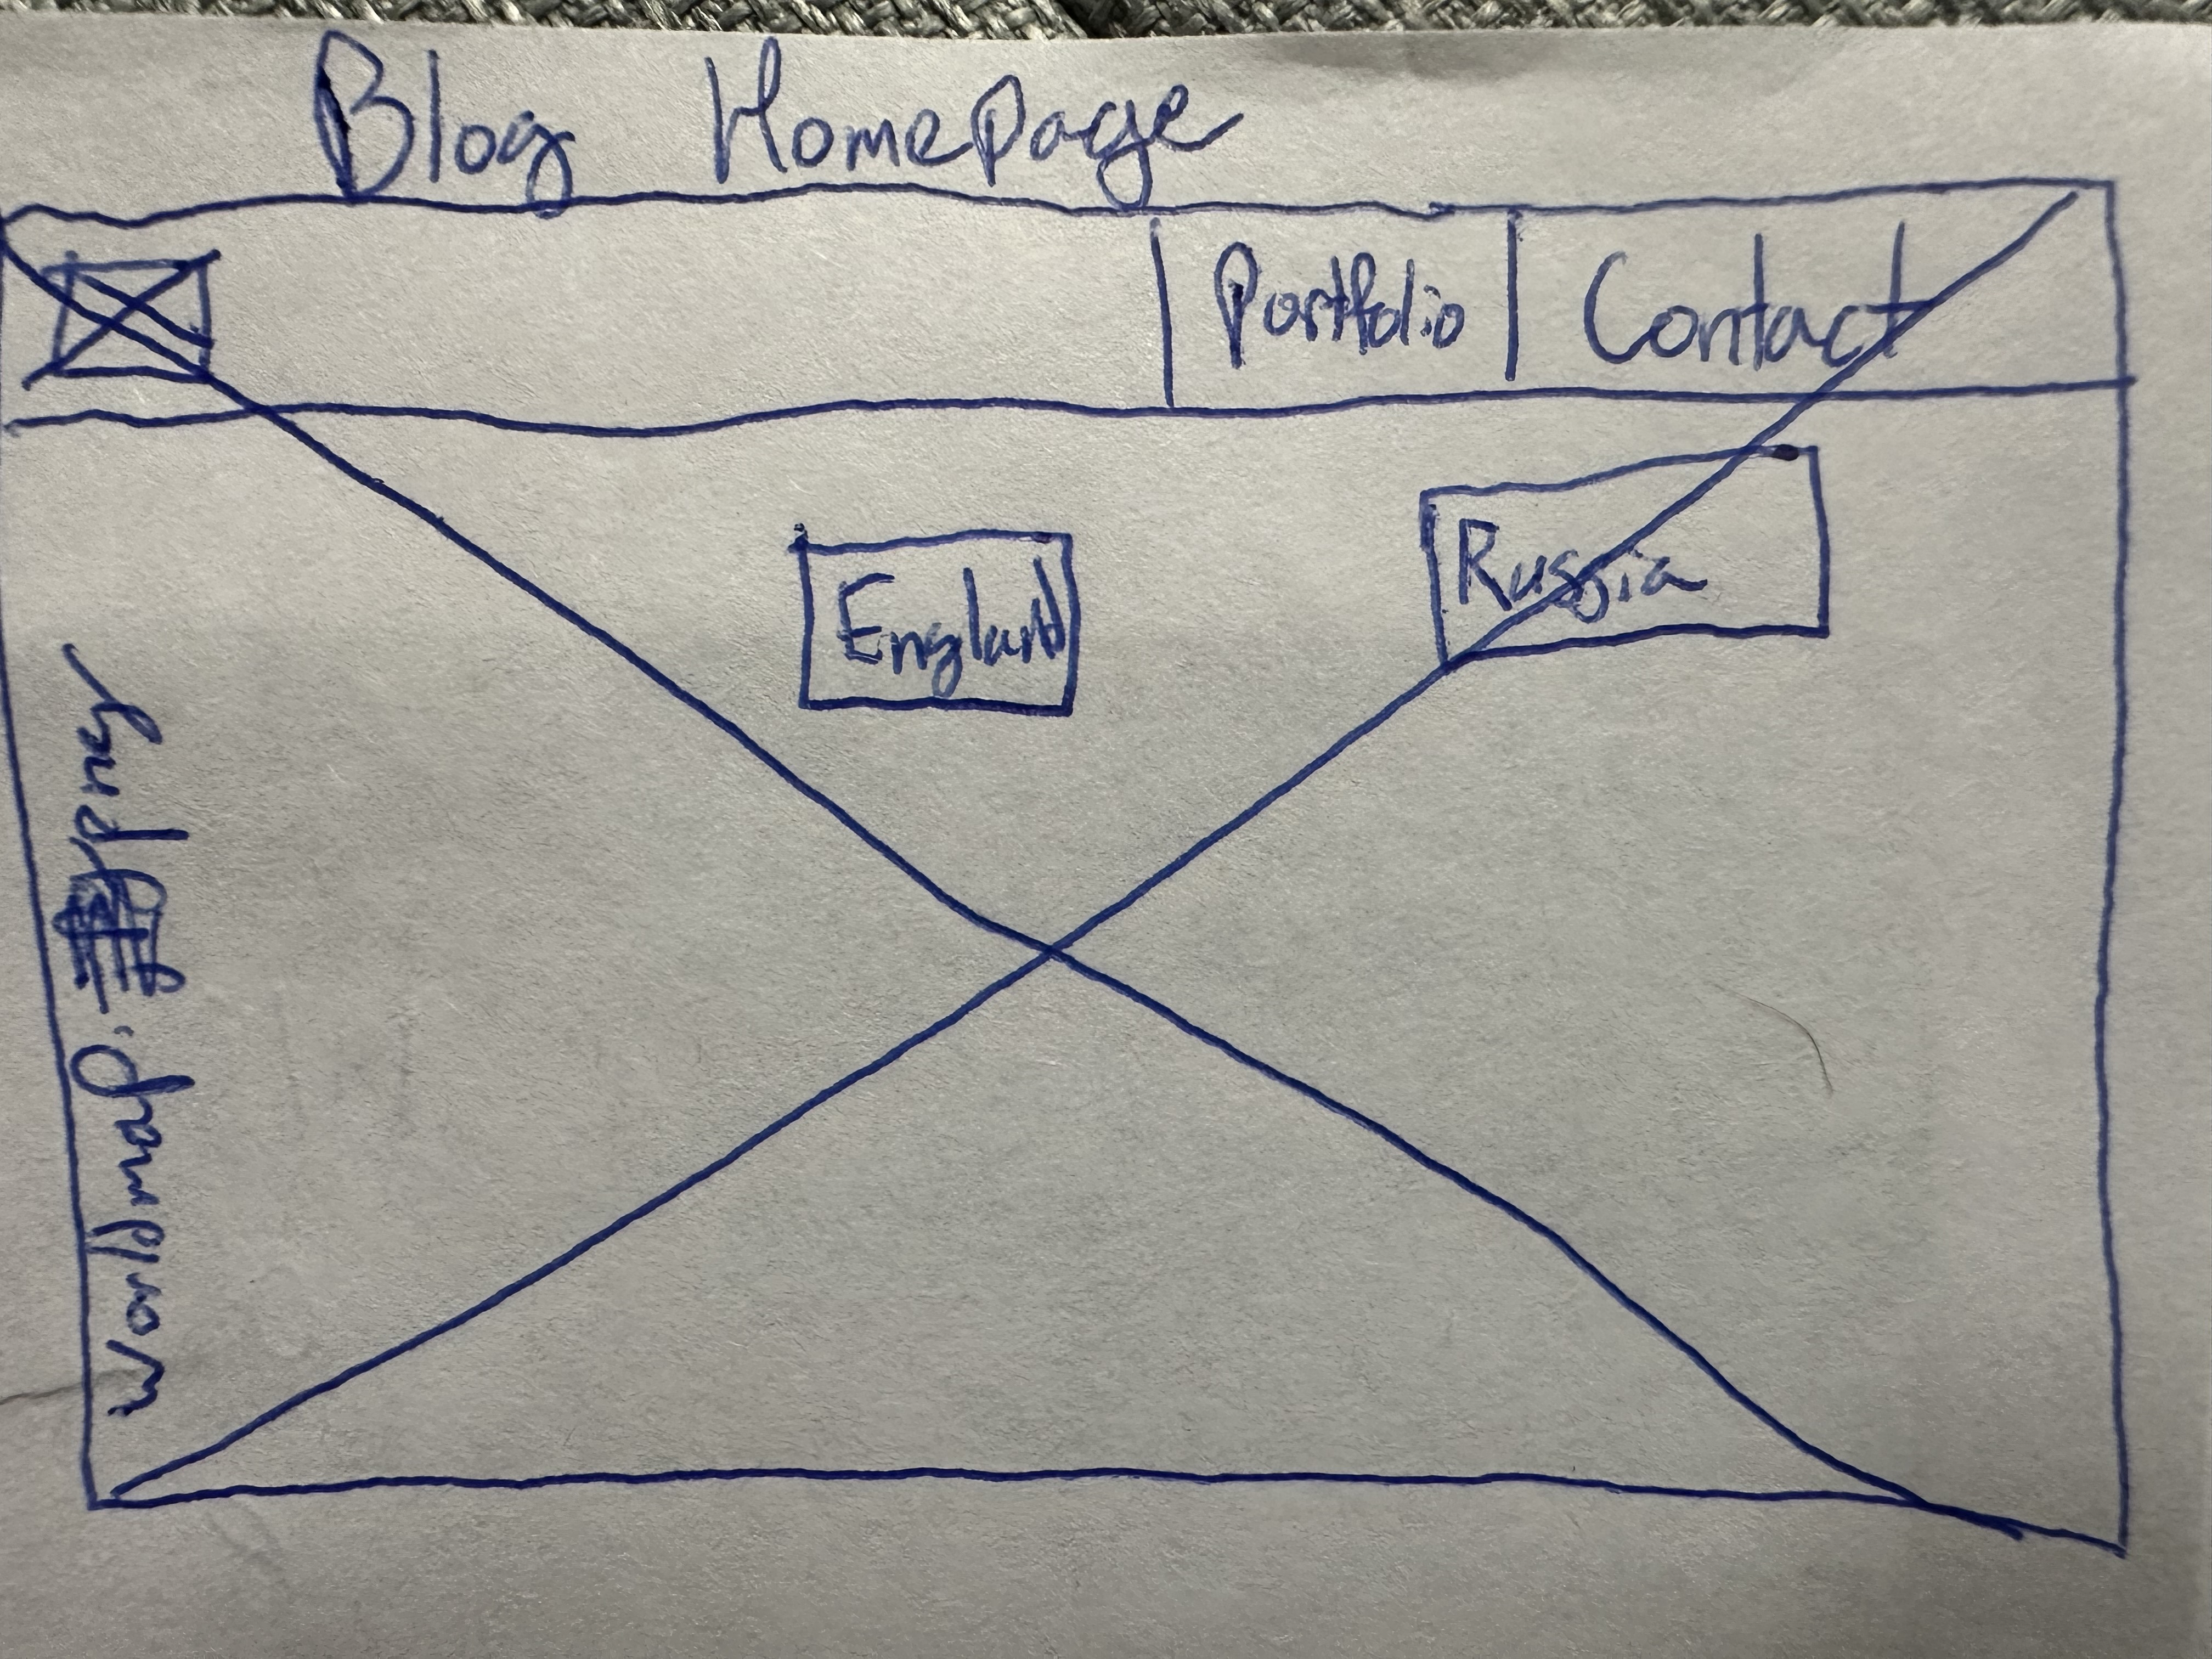 Blog Homepage
Portfolio
Contact
England
Russia
worldmap.